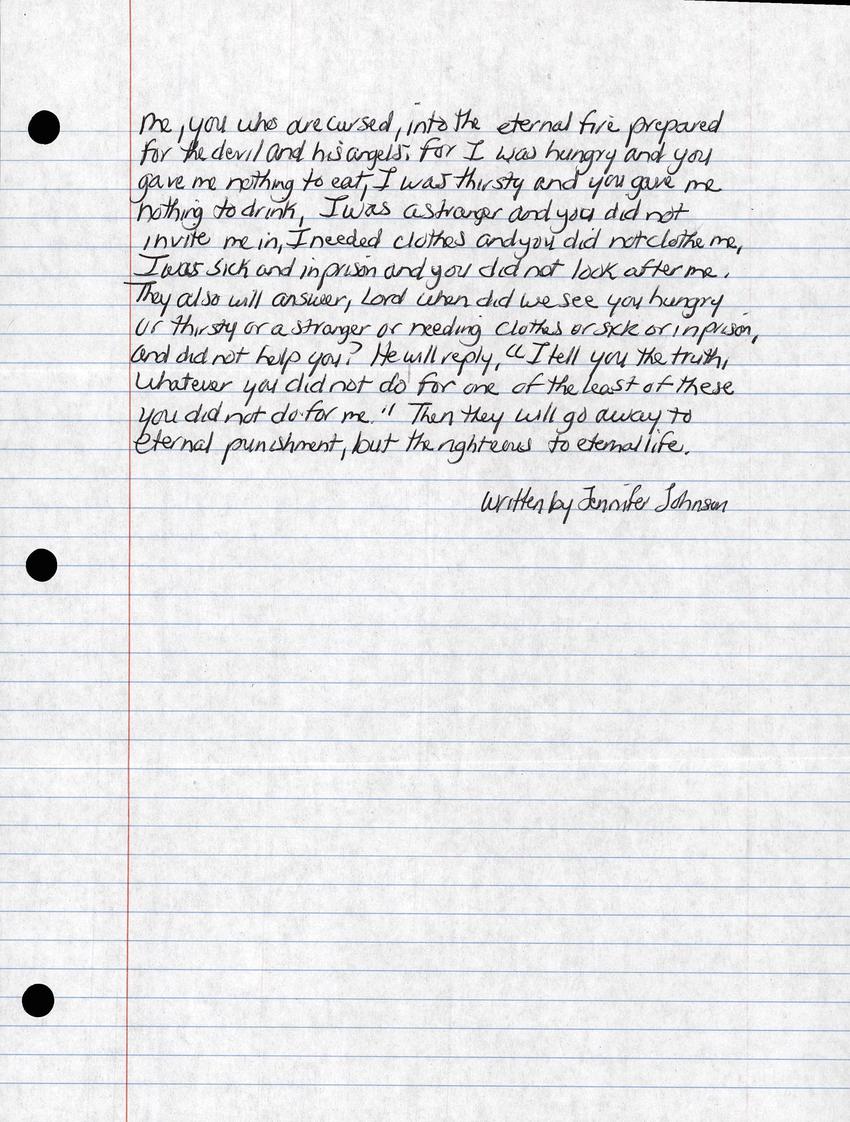 me, you who are cursed, into the eternal fire prepared
for the devil and his angels. For I was hungry and you
gave me nothing to eat, I was thirsty and you gave me
nothing to drink, I was a stranger and you did not
invite me in, I needed clothes and you did not clothe me,
I was sick and in prison and you did not look after me.
They also will answer, Lord when did we see you hungry
or thirsty or a stranger or needing clothes or sick or in prison,
and did not help you? He will reply, "I tell you the truth,
whatever you did not do for one of the least of these
you did not do for me." Then they will go away to
eternal punishment, but the righteous to eternal life.
written by Jennifer Johnson